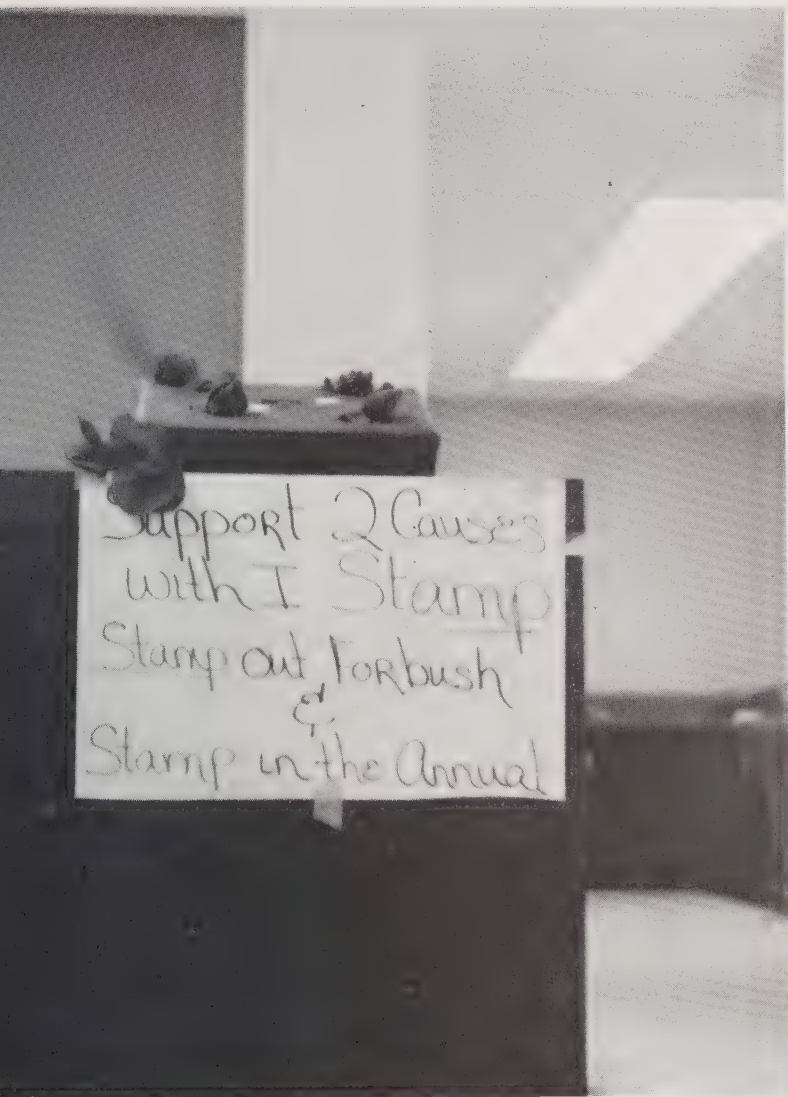 Support 2 Causes
with I Stamp
Stamp out Forbush
&
Stamp in the Annual